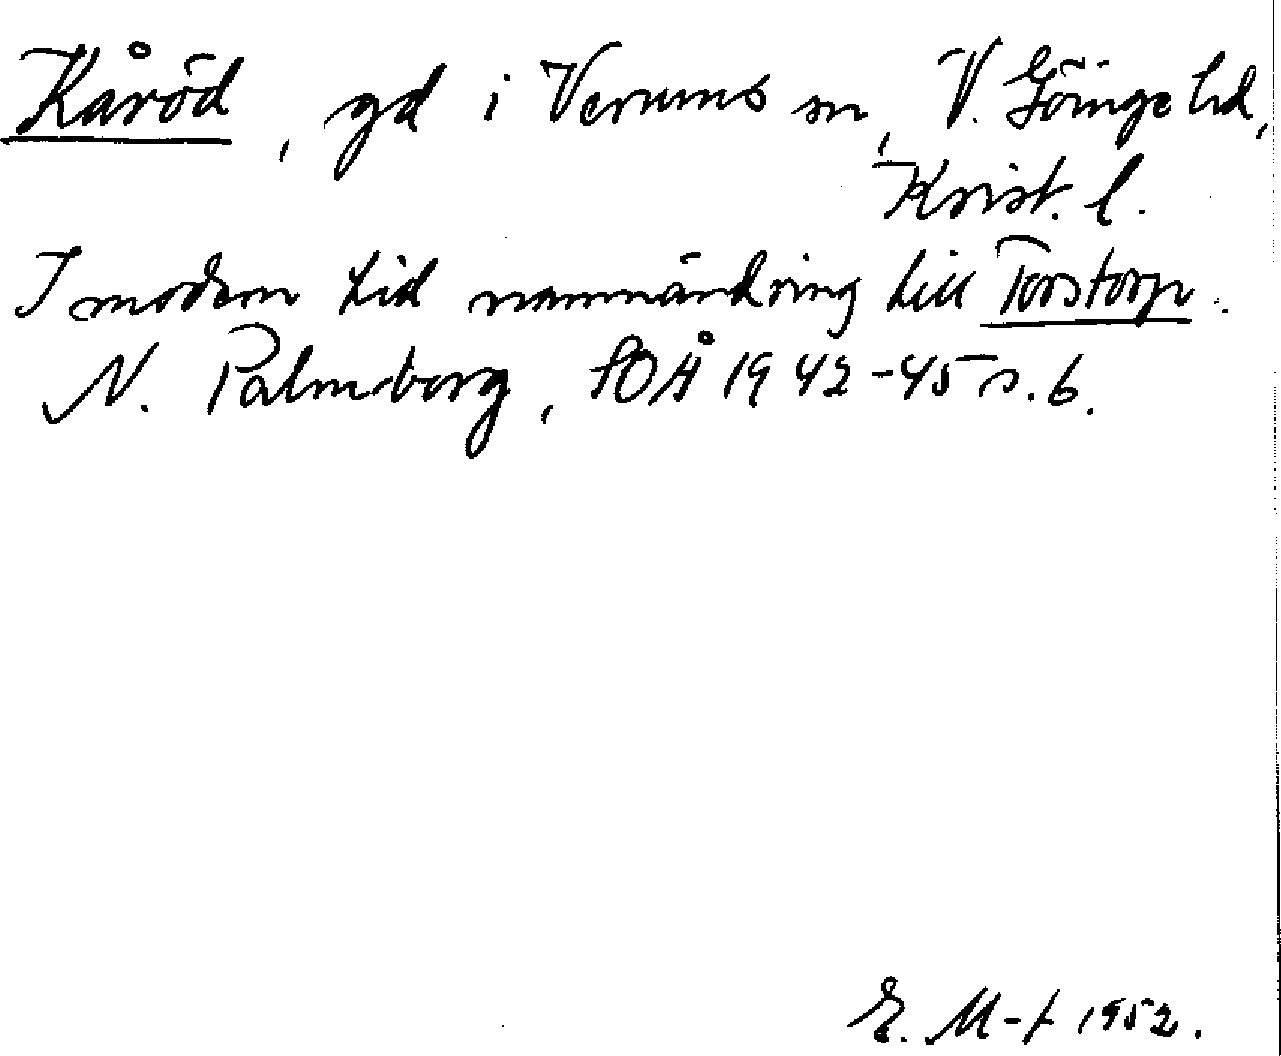 Kåröd, gd i Verums sn, V. Göinge hd,
Krist. l.
I modern tid namnändring till Torstorp.
N. Palmborg, SOÅ 1942-45 s. 6.
E. M-t 1952.